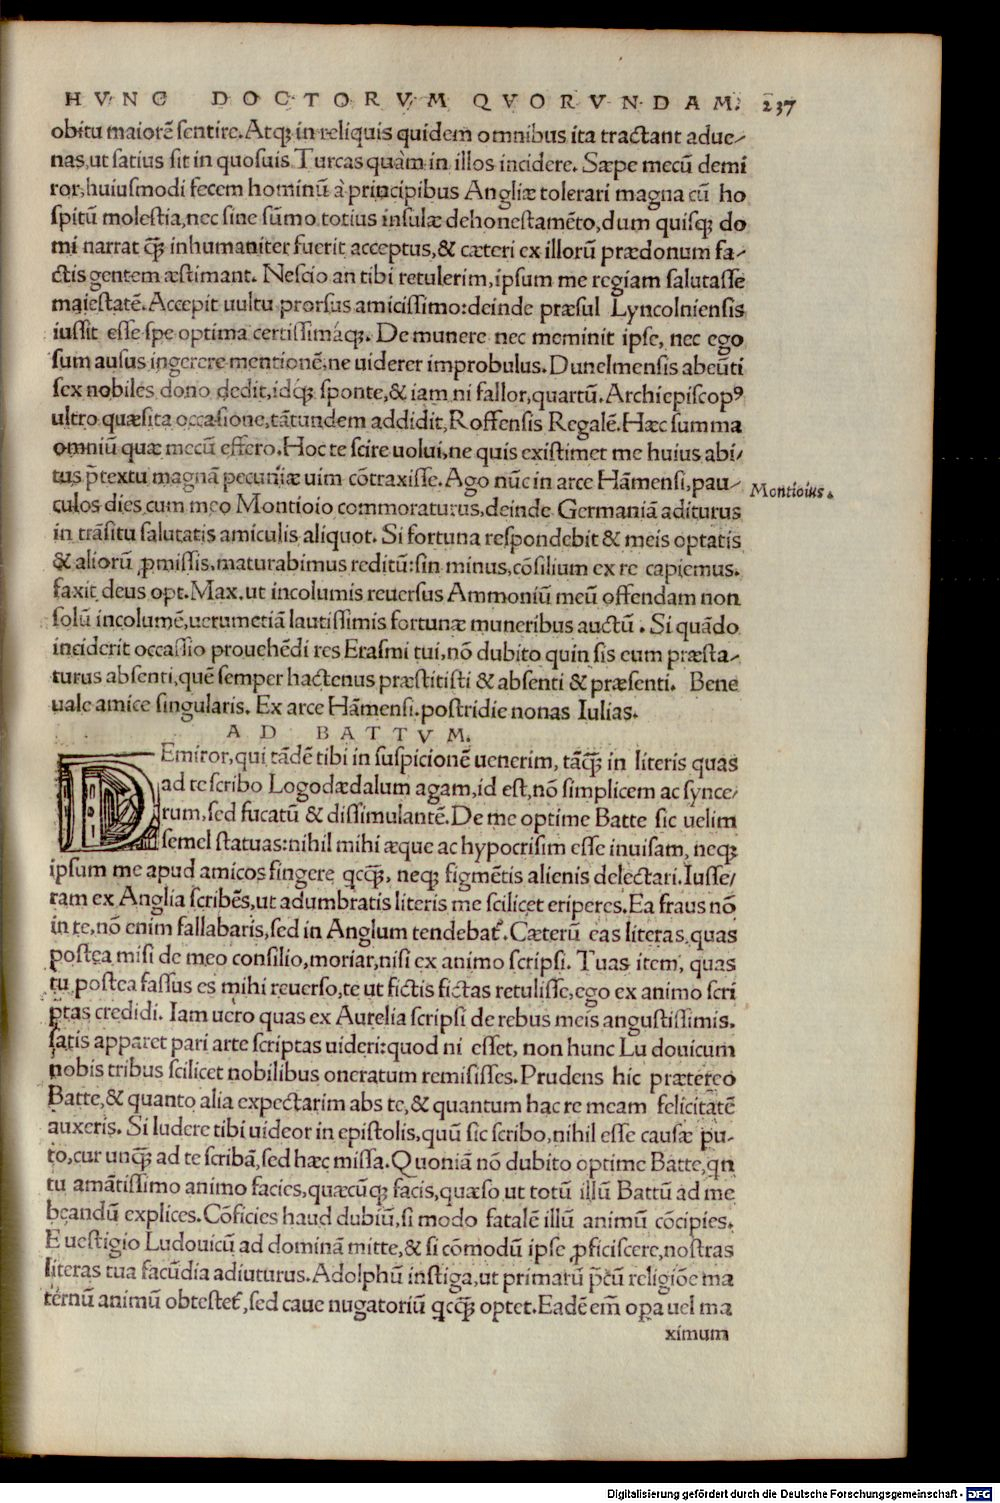 HVNC DOCTORVM QVORVNDAM. 237
obitu maiorē sentire. Atq; in reliquis quidem omnibus ita tractant adue-
nas, ut satius sit in quosuis Turcas quàm in illos incidere. Sæpe mecū demi
ror, huiusmodi fecem hominū à principibus Angliæ tolerari magna cū ho
spitū molestia, nec sine sūmo totius insulæ dehonestamēto, dum quisq; do
mi narrat q̄ꝫ inhumaniter fuerit acceptus, & cæteri ex illorū prædonum fa-
ctis gentem æstimant. Nescio an tibi retulerim, ipsum me regiam salutasse
maiestatē. Accepit uultu prorsus amicissimo: deinde præsul Lyncolniensis
iussit esse spe optima certissimáq;. De munere nec meminit ipse, nec ego
sum ausus ingerere mentionē, ne uiderer improbulus. Dunelmensis abeūti
sex nobiles dono dedit, idq́; sponte, & iam ni fallor, quartū. Archiepiscopꝰ
ultro quæsita occasione, tātundem addidit, Roffensis Regalē. Hæc summa
omniū quæ mecū effero. Hoc te scire uolui, ne quis existimet me huius abi-
tus p̄textu magnā pecuniæ uim cōtraxisse. Ago nūc in arce Hāmensi, pau-
Montioius.
culos dies cum meo Montioio commoraturus, deinde Germaniā aditurus
in trāsitu salutatis amiculis aliquot. Si fortuna respondebit & meis optatis
& aliorū ꝓmissis, maturabimus reditū: sin minus, cōsilium ex re capiemus.
faxit deus opt. Max. ut incolumis reuersus Ammoniū meū offendam non
solū incolumē, uerumetiā lautissimis fortunæ muneribus auctū. Si quādo
inciderit occassio prouehēdi res Erasmi tui, nō dubito quin sis eum præsta-
turus absenti, quē semper hactenus præstitisti & absenti & præsenti. Bene
uale amice singularis. Ex arce Hāmensi. postridie nonas Iulias.
AD BATTVM.
DEmiror, qui tādē tibi in suspicionē uenerim, tāq̄ꝫ in literis quas
ad te scribo Logodædalum agam, id est, nō simplicem ac synce-
rum, sed fucatū & dissimulantē. De me optime Batte sic uelim
semel statuas: nihil mihi æque ac hypocrisim esse inuisam, neq;
ipsum me apud amicos fingere qcq̄ꝫ, neq; figmētis alienis delectari. Iusse-
ram ex Anglia scribēs, ut adumbratis literis me scilicet eriperes. Ea fraus nō
in te, nō enim fallabaris, sed in Anglum tendebat᷑. Cæterū eas literas, quas
postea misi de meo consilio, moriar, nisi ex animo scripsi. Tuas item, quas
tu postea fassus es mihi reuerso, te ut fictis fictas retulisse, ego ex animo scri
ptas credidi. Iam uero quas ex Aurelia scripsi de rebus meis angustissimis,
satis apparet pari arte scriptas uideri: quod ni esset, non hunc Lu douicum
nobis tribus scilicet nobilibus oneratum remisisses. Prudens hic prætereo
Batte, & quanto alia expectarim abs te, & quantum hac re meam felicitatē
auxeris. Si ludere tibi uideor in epistolis, quū sic scribo, nihil esse causæ pu-
to, cur unq̄ꝫ ad te scribā, sed hæc missa. Quoniā nō dubito optime Batte, qn
tu amātissimo animo facies, quæcūq; facis, quæso ut totū illū Battū ad me
beandū explices. Cōficies haud dubiū, si modo fatalē illū animū cōcipies.
E uestigio Ludouicū ad dominā mitte, & si cōmodū ipse ꝓficiscere, nostras
literas tua facūdia adiuturus. Adolphū instiga, ut primarū p̄cū religiōe ma
ternū animū obtestet᷑, sed caue nugatoriū qcq̄ꝫ optet. Eadē em̄ opa uel ma
ximum
Digitalisierung gefördert durch die Deutsche Forschungsgemeinschaft - DFG